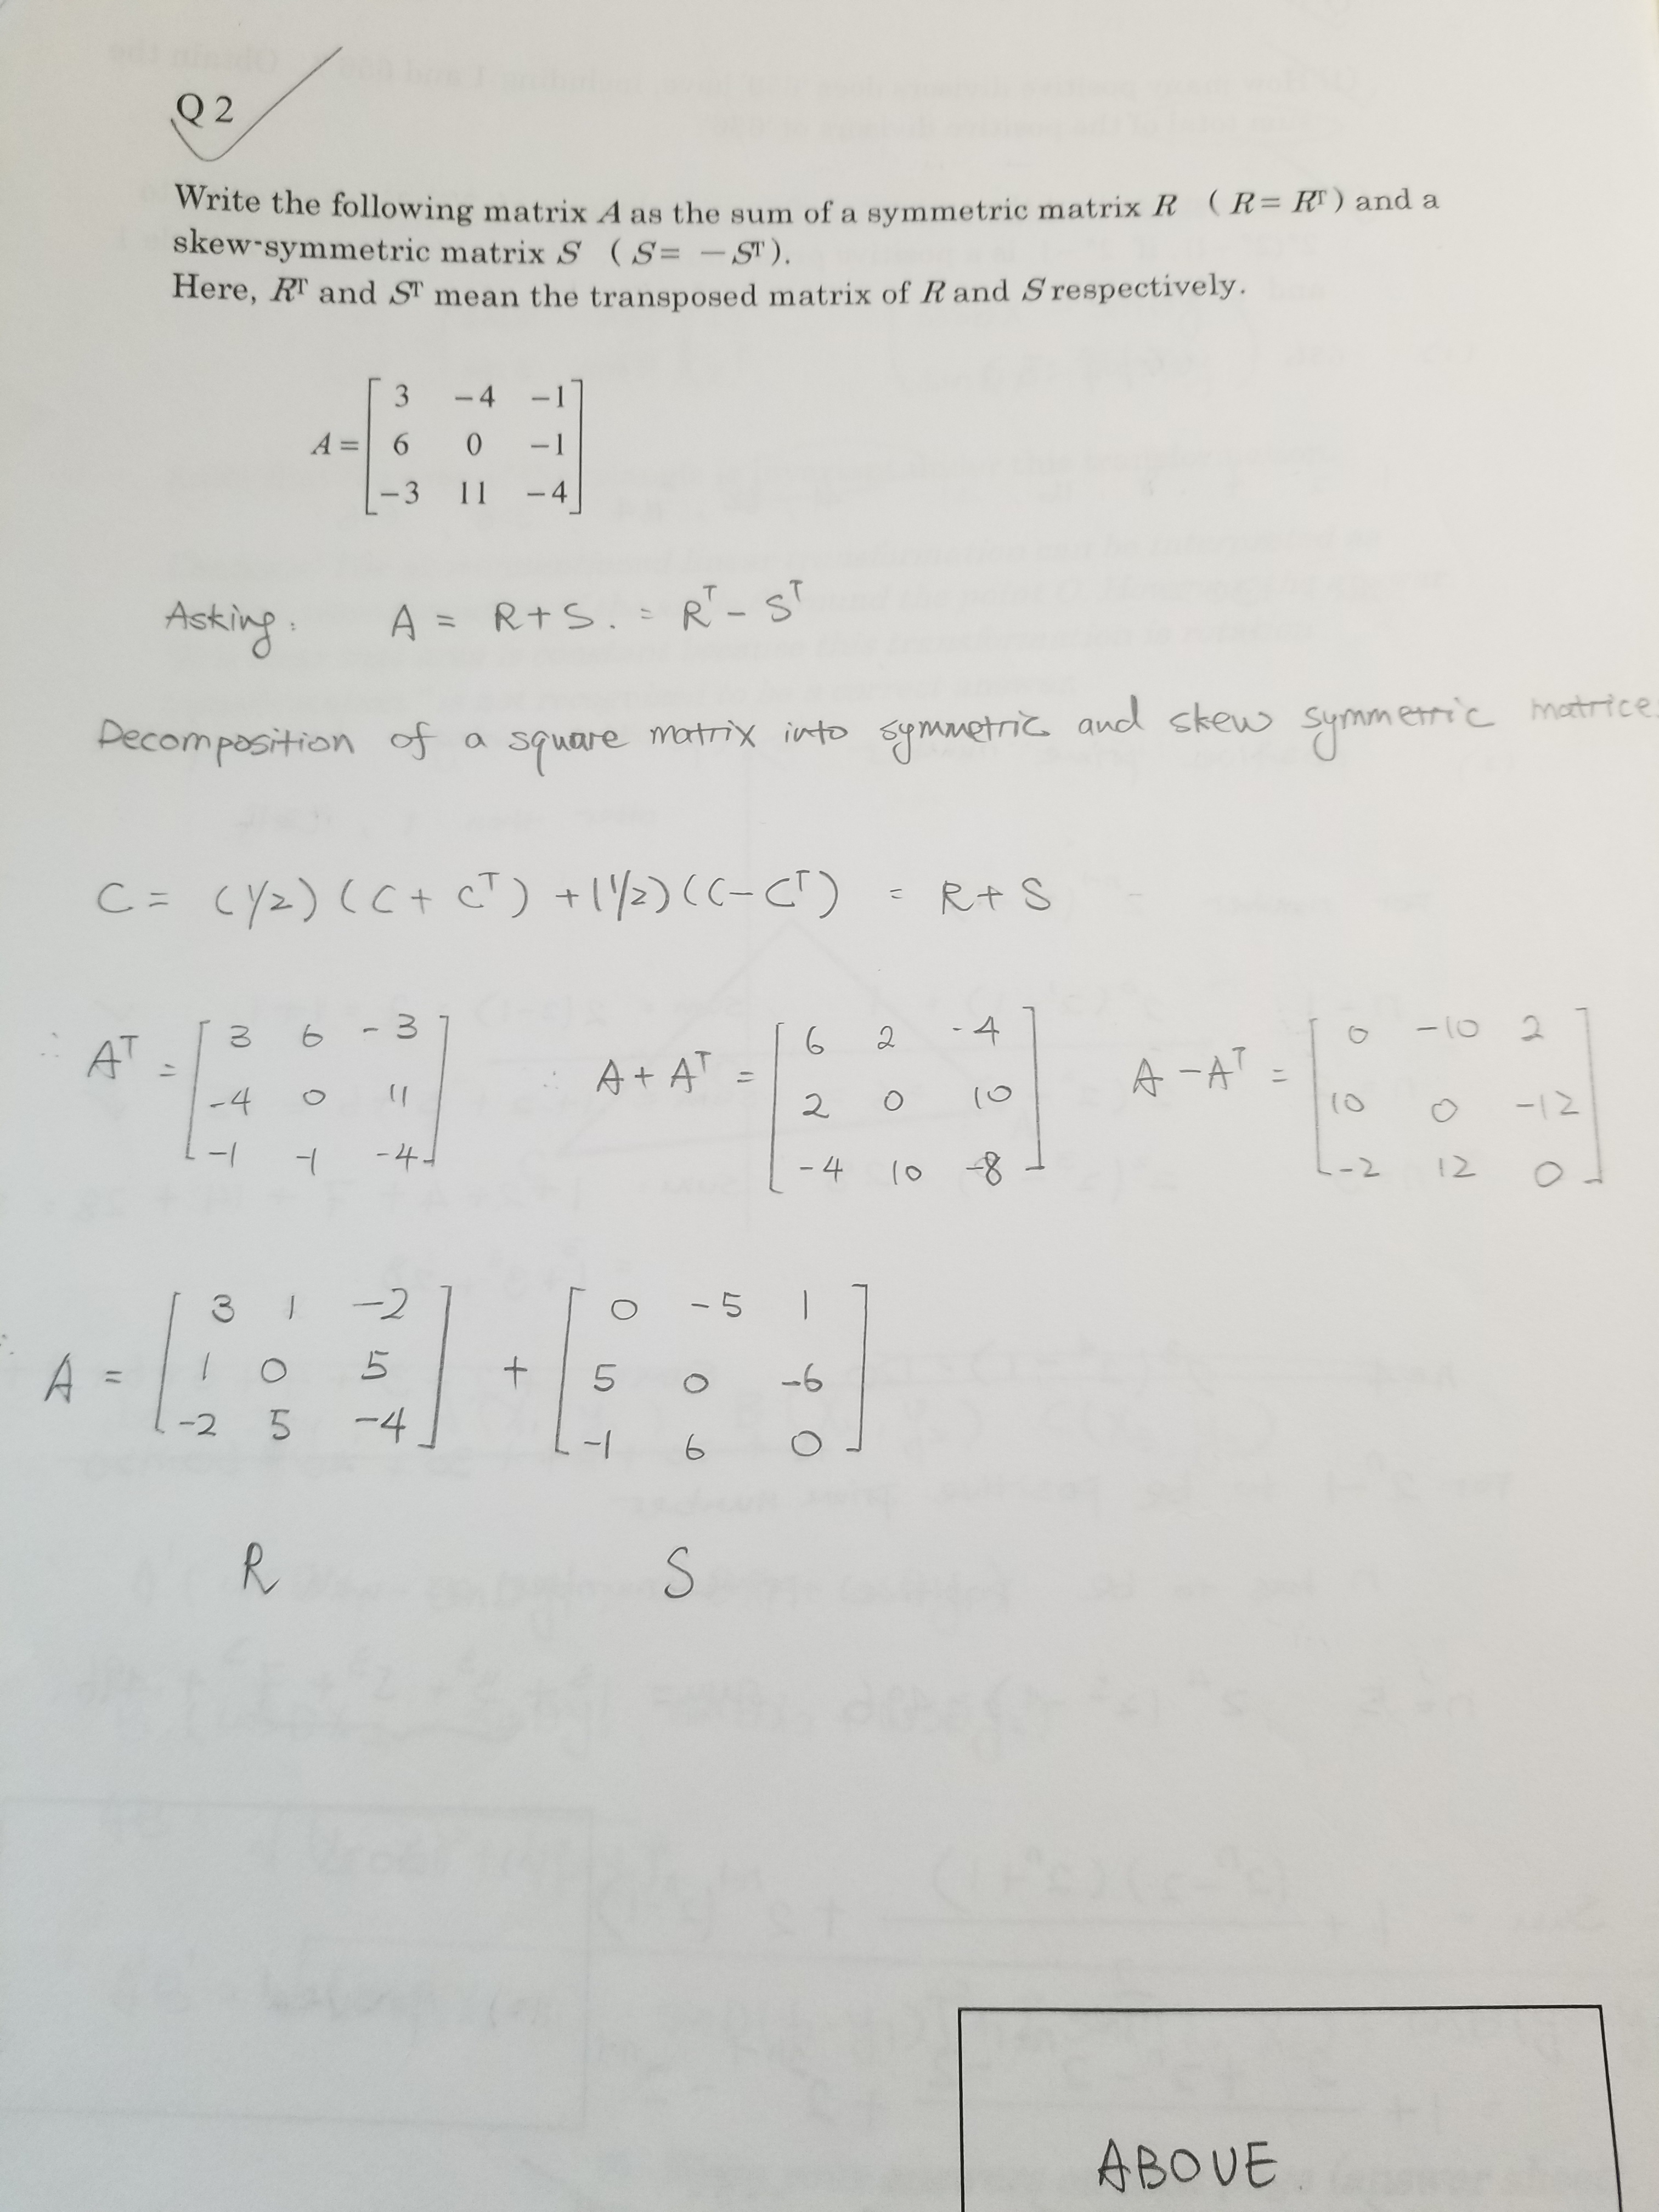 Q 2
Write the following matrix A as the sum of a symmetric matrix R ( R= Rᵀ ) and a
skew-symmetric matrix S ( S= −Sᵀ ).
Here, Rᵀ and Sᵀ mean the transposed matrix of R and S respectively.
3 −4 −1
A = 6 0 −1
−3 11 −4
Asking: A = R+S. = Rᵀ − Sᵀ
Decomposition of a square matrix into symmetric and skew symmetric matrice
C = (1/2) (C + Cᵀ) + (1/2) (C − Cᵀ) = R + S
∴ Aᵀ = [ 3 6 -3 ; -4 0 11 ; -1 -1 -4 ] ∴ A + Aᵀ = [ 6 2 -4 ; 2 0 10 ; -4 10 -8 ] A − Aᵀ = [ 0 -10 2 ; 10 0 -12 ; -2 12 0 ]
∴ A = [ 3 1 -2 ; 1 0 5 ; -2 5 -4 ] + [ 0 -5 1 ; 5 0 -6 ; -1 6 0 ]
R S
ABOVE